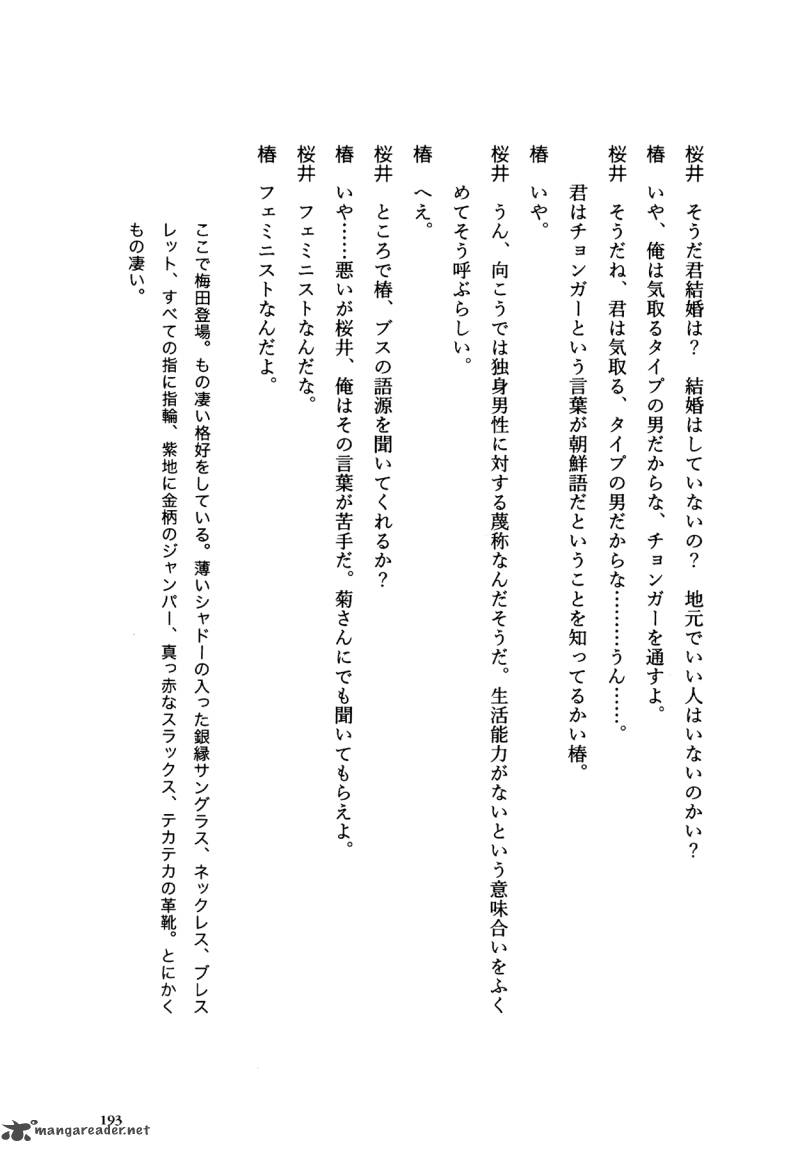 桜井　そうだ君結婚は？　結婚はしていないの？　地元でいい人はいないのかい？
椿　いや、俺は気取るタイプの男だからな、チョンガーを通すよ。
桜井　そうだね、君は気取る、タイプの男だからな………うん……。
君はチョンガーという言葉が朝鮮語だということを知ってるかい椿。
椿　いや。
桜井　うん、向こうでは独身男性に対する蔑称なんだそうだ。生活能力がないという意味合いをふく
めてそう呼ぶらしい。
椿　へえ。
桜井　ところで椿、ブスの語源を聞いてくれるか？
椿　いや……悪いが桜井、俺はその言葉が苦手だ。菊さんにでも聞いてもらえよ。
桜井　フェミニストなんだな。
椿　フェミニストなんだよ。
ここで梅田登場。もの凄い格好をしている。薄いシャドーの入った銀縁サングラス、ネックレス、ブレス
レット、すべての指に指輪、紫地に金柄のジャンパー、真っ赤なスラックス、テカテカの革靴。とにかく
もの凄い。
193
mangareader.net